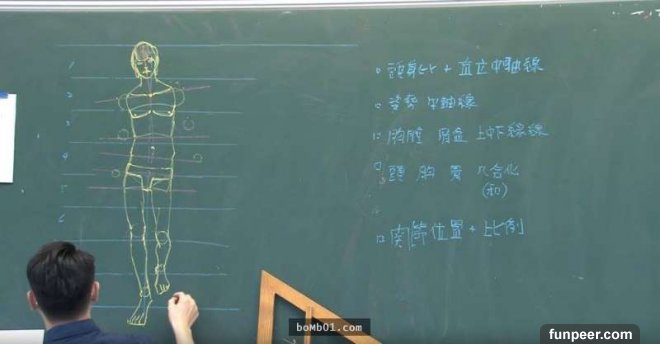 1
2
3
4
5
6
頭身比 + 直立中軸線
姿勢 中軸線
胸腔 骨盆 上下緣線
頭 胸 合化
關節位置 + 比例
boMb01.com
funpeer.com